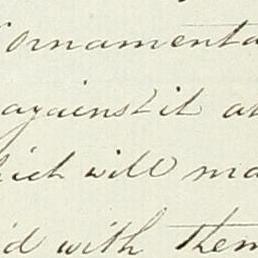 ornamenta
against it at
hich will ma
id with them